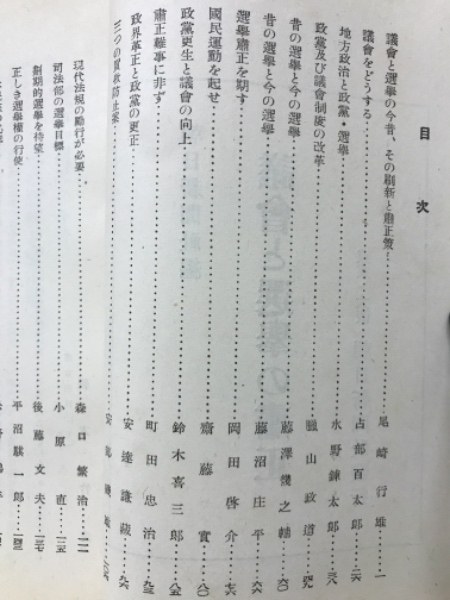 目次
議會と選擧の今昔、その刷新と肅正策……尾崎行雄……一
議會をどうする……占部百太郎……二六
地方政治と政黨・選擧……水野錬太郎……三八
政黨及び議會制度の改革……蠟山政道……四九
昔の選擧と今の選擧……藤澤幾之輔……六〇
昔の選擧と今の選擧……藤沼庄平……六六
選擧肅正を期す……岡田啓介……七六
國民運動を起せ……齋藤實……八〇
政黨更生と議會の向上……鈴木喜三郎……八五
肅正難事に非ず……町田忠治……九三
政界革正と政黨の更正……安達謙藏……九六
三つの買收防止案……安部磯雄……一〇六
現代法規の勵行が必要……森口繁治……一二一
司法部の選擧目標……小原直……一三五
劃期的選擧を待望……後藤文夫……一三七
正しき選擧權の行使……平沼騏一郎……一四三